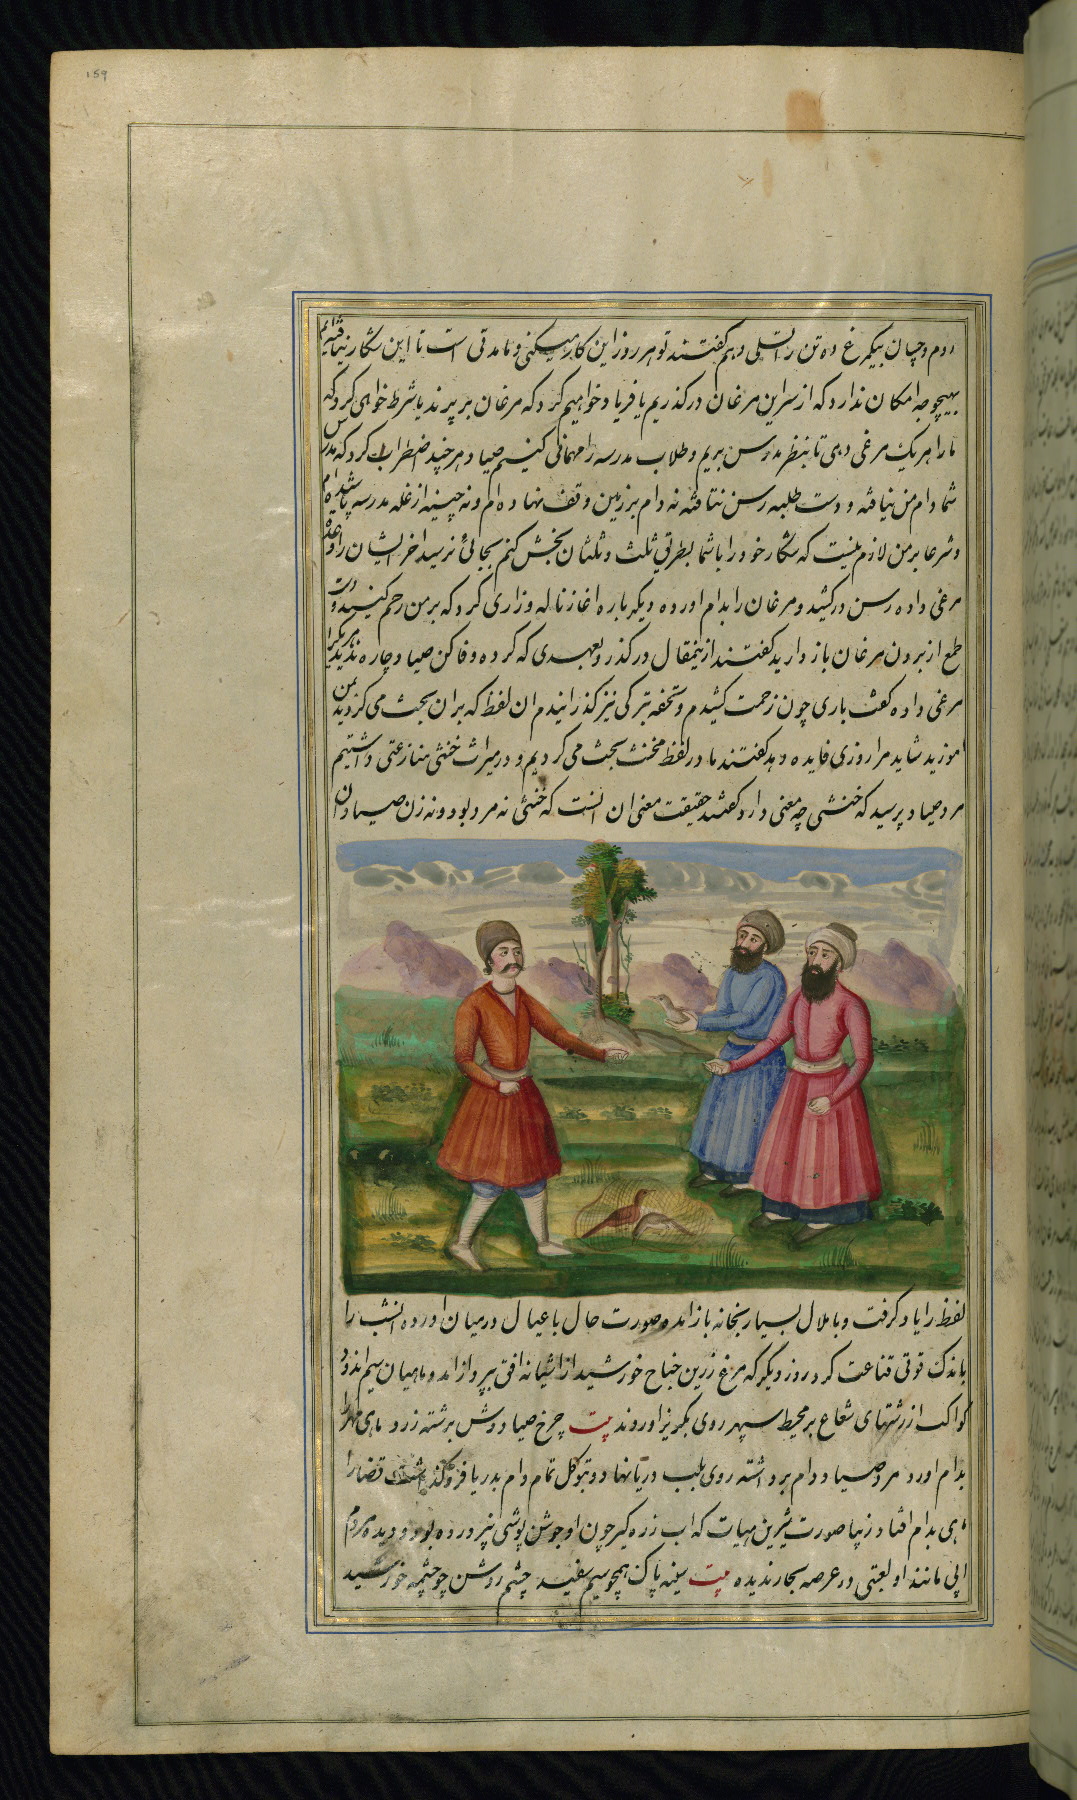 159
روم و چسان بیکمرغ ده تن را تسلی دهم گفتند تو هر روز این کار میکنی و ما مدتی است تا این شکار نیافته ایم
بهیچوجه امکان ندارد که از سر این مرغان درگذریم یا فریاد خواهیم کرد که مرغان بر پرند یا شرط خواهی کرد که
ما را هر یک مرغی دهی تا بنظر مدرس بریم و طلاب مدرسه را مهمانی کنیم صیاد هر چند اضطراب کرد که مدرس
شما دام من نیافته و دست طلبه رسن نتافته نه دام بر زمین وقف نهاده ام و نه چینه از غله مدرسه پاشیده ام
و شرعا بر من لازم نیست که شکار خود را با شما بطریق ثلث و ثلثان بخش کنم بجائی نرسید اخر ایشان را وعده
مرغی داده رسن درکشید و مرغان را بدام اورده دیگر باره اغاز ناله و زاری کرد که بر من رحم کنید و دست
طمع از بردن مرغان باز دارید گفتند ازین مقال درگذر و بعهدی که کرده وفا کن صیاد چاره ندید هر یک را
مرغی داده گفت باری چون زحمت کشیدم و تحفه تبرکی نیز گذرانیدم ان لفظ که بران بحث می کردید بمن
اموزید شاید مرا روزی فایده دهد گفتند ما در لفظ مخنث بحث می کردیم و در میراث خنثی منازعتی داشتیم
مرد صیاد پرسید که خنثی چه معنی دارد گفتند حقیقت معنی ان انست که خنثی نه مرد بود و نه زن صیاد ان
لفظ را یاد گرفت و با ملال بسیار بخانه باز امده صورت حال با عیال درمیان اورده انشب را
باندک قوتی قناعت کرد روز دیگر که مرغ زرین جناح خورشید از اشیانه افق بپرواز امد و ماهیان سیم اندود
کواکب از رشتهای شعاع بر محیط سپهر روی بگریز اوردند بیت چرخ صیاد وش برشته زرد ماهی مهر را
بدام اورد مرد صیاد دام برداشته روی بلب دریا نهاد و بتوکل تمام دام بدریا فروگذاشت قضا را
ماهی بدام افتاد زیبا صورت شیرین هیات که اب زره گیر چون او جوشن پوشی نپرورده بود و دیده مردم
ابی مانند او لعبتی در عرصه بحار ندیده بیت سینه پاک همچو سیم سفید چشم روشن چو چشمه خورشید